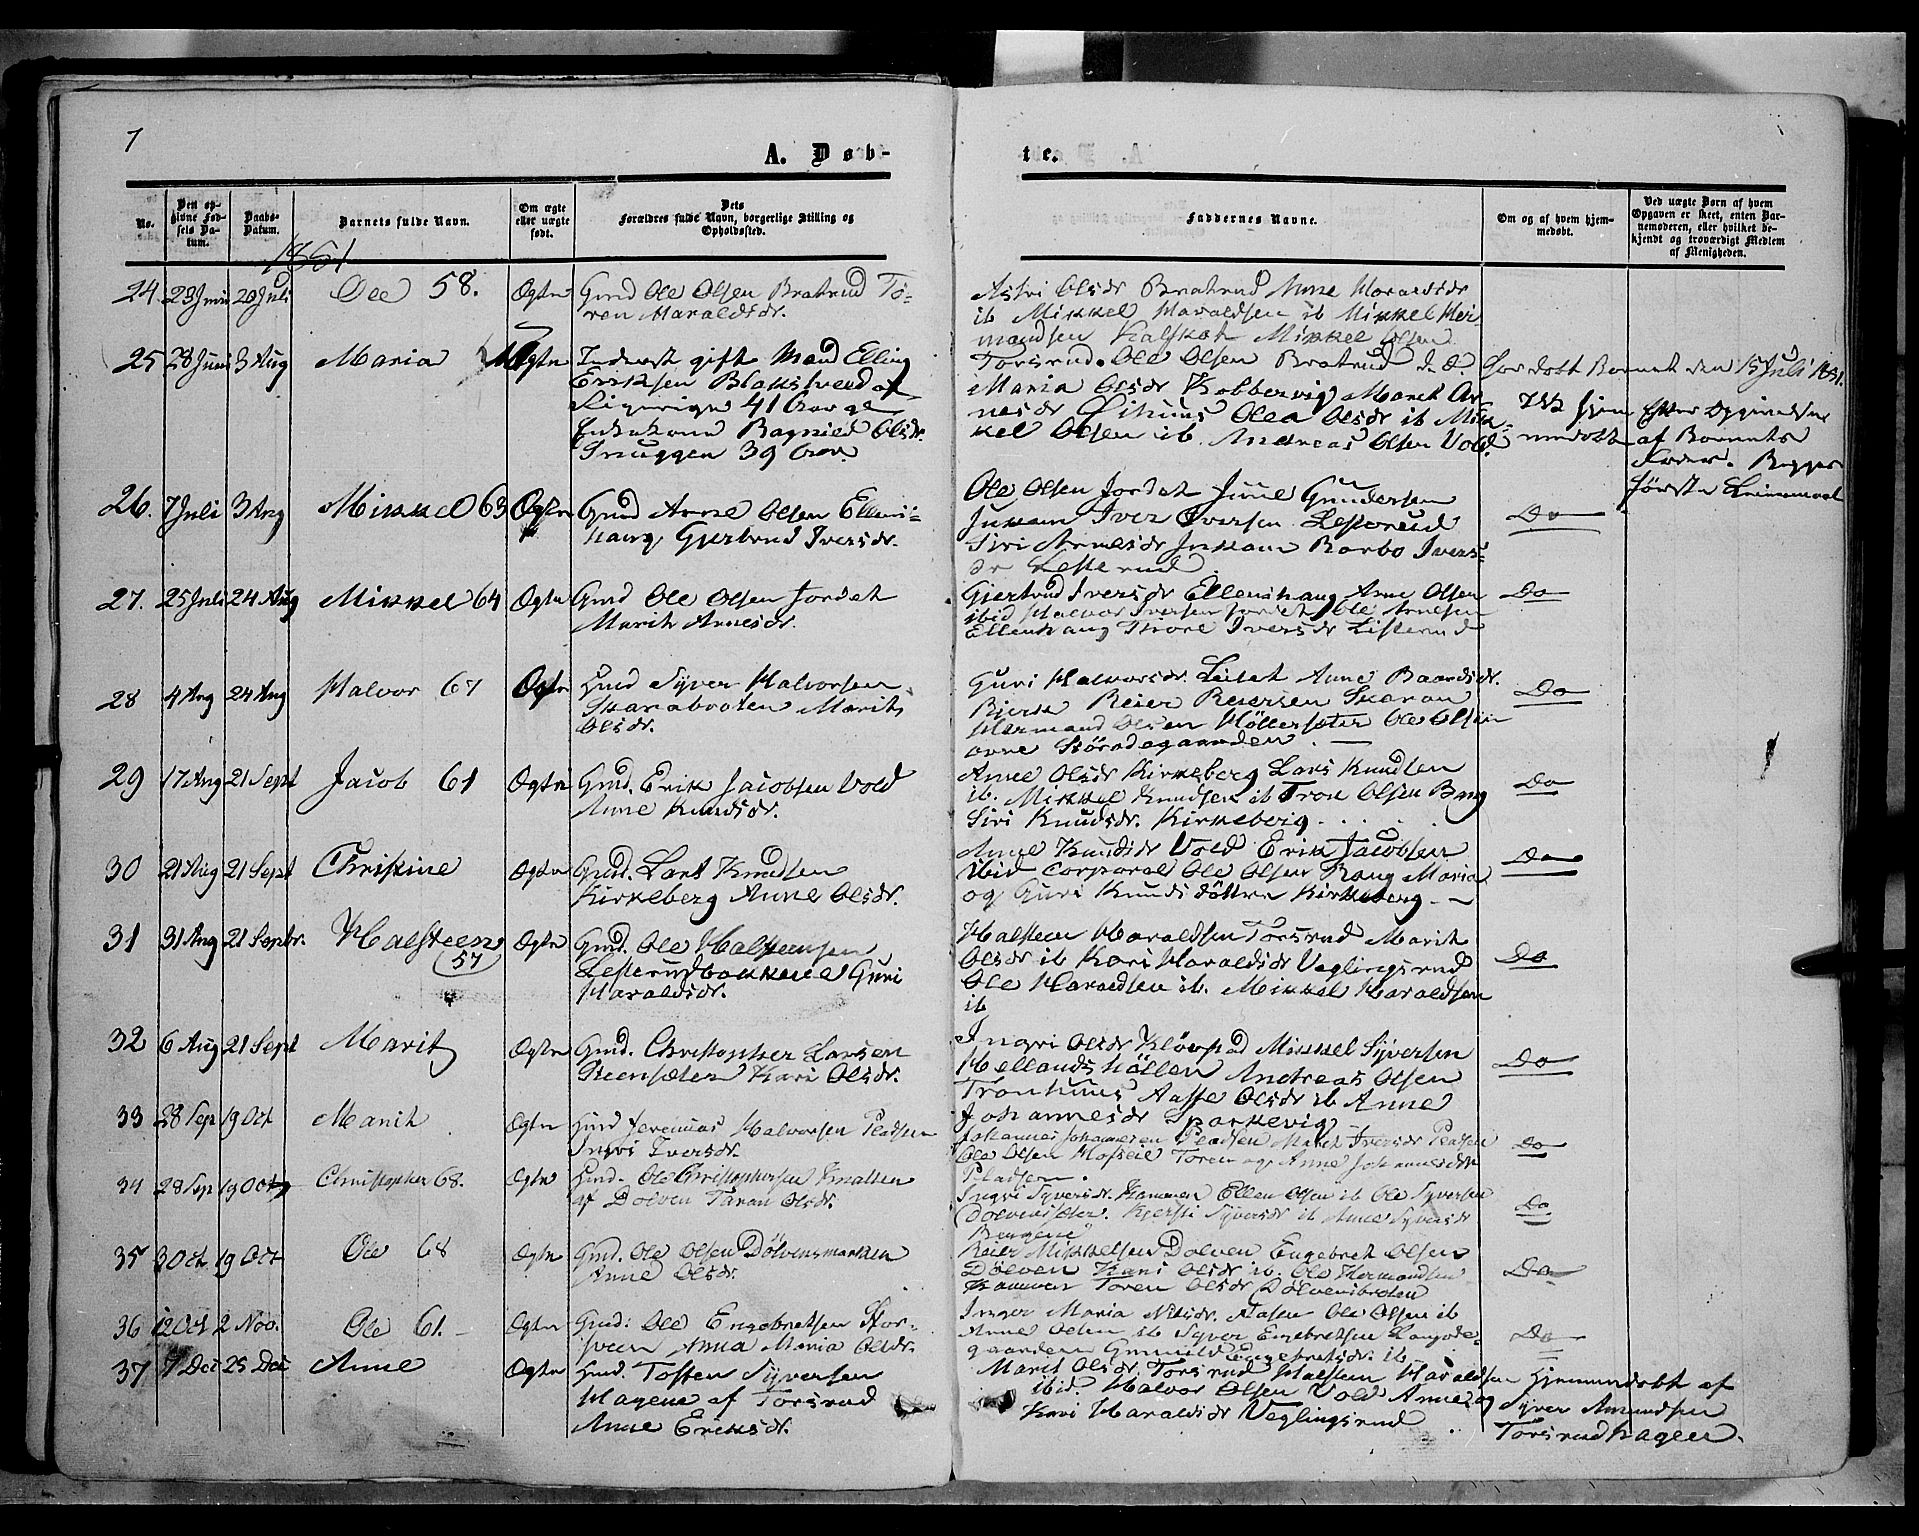 7
A. Døb-
te.
No.
Den op-
givne Fød-
sels Da-
tum.
Daabs-
Datum.
Barnets fulde Navn.
Om ægte
eller uægte
født.
Dets
Forældres fulde Navn, borgerlige Stilling og
Opholdssted.
Faddernes Navne.
Om og af hvem hjem-
medøbt.
Ved uægte Børn af hvem
Opgaven er skeet, enten Bar-
nemoderen, eller hvilket be-
kjendt og troværdigt Medlem
af Menigheden.
1851
24. 23 Juni 20 Juli Ole 58. Ægte
Gmd Ole Olsen Bratrud To-
ren Haraldsdr.
Astri Olsdr Bratrud Anne Haraldsdr
ib Mikkel Haraldsen ib Mikkel Her-
mandsen Kalskot Mikkel Olsen
25 28 Juni 3 Aug Maria
Inderst gift Mand Elling
Eriksen Blakstvedt af
41 Aar
Ragnild Olsdr.
Snuggen 39 Aar.
Torsrud. Ole Olsen Bratrud d. æ.
Maria Olsdr Kobbervig Marit Ar-
nesdr Olea Olsdr ib Mik-
kel Olsen ib. Andreas Olsen Vold.
døbt Barnet den 15 Juli 1851.
hjem
medøbt
Efter Opgivelse
af Barnets
Fader. Begges
første Leiermaal
26. 7 Juli 3 Aug Mikkel 63 Ægte
Gmd Arne Olsen Ellens-
haug Gjertrud Iversdr.
Ole Olsen Jordet Juul Gundersen
Iver Iversen Lesterud
Siri Arnesdr Barbo Ivers-
dr Lesterud
Do
27. 25 Juli 24 Aug Mikkel 64 Ægte
Gmd Ole Olsen Jordet
Marit Arnesdr.
Gjertrud Iversdr Ellenshaug Arne Olsen
ibid Halvor Iversen Jordet Ole Arnesen
Ellenshaug Thore Iversdr Listerud
Do
28 4 Aug 24 Aug Halvor 67 Ægte
Gmd Syver Halvorsen
Skarabroten Marit
Olsdr.
Guri Halvorsdr. Anne Baardsdr.
Bjerk Reier Reiersen Skaran
Hermand Olsen Høllesæter Ole Olsen
øvre
Do
29 17 Aug 21 Sept Jacob 61 Ægte
Gmd. Erik Jacobsen Vold
Anne Knudsdr.
Anne Olsdr Kirkeberg Lars Knudsen
ib. Mikkel Knudsen ib Tron Olsen Bang
Siri Knudsdr. Kirkeberg
Do
30 21 Aug 21 Sept Christine Ægte
Gmd. Lars Knudsen
Kirkeberg Anne Olsdr.
Anne Knudsdr Vold Erik Jacobsen
ibid Corporal Ole Olsen Bang Maria
og Guri Knudsdøttre Kirkeberg
Do
31 31 Aug 21 Septbr. Halsteen 57 Ægte
Gmd. Ole Halsteensen
Lesterudbakkene Guri
Haraldsdr.
Halsteen Haraldsen Torsrud Marit
Olsdr ib Kari Haraldsdr Veglingsrud
Ole Haraldsen ib. Mikkel Haraldsen
ib
Do
32 6 Aug 21 Sept Marit Ægte
Gmd. Christopher Larsen
Steensæter Kari Olsdr.
Ingri Olsdr Mikkel Syversen
Hellandshøllen Andreas Olsen
Tronhuus Aasse Olsdr ib Anne
Johannesdr Sparkevig
Do
33 28 Sep 19 Oct Marit Ægte
Gmd Jeremias Halvorsen Pladsen
Ingri Iversdr.
Johannes Johannesen Pladsen Marit Iversdr Pladsen
Ole Olsen Hofseie Toren og Anne Johannesdtr
Pladsen
Do
34 28 Sep 19 Oct Christopher 68. Ægte
Gmd. Ole Christophersen Knatten
af Dølven Taran Olsdr.
Ingri Syversdr. Kammen Ellen Olsen ib Ole Syversen
Dølvensæter. Kjersti Syversdr ib Anne Syversdr
Do
35 3 Oct 19 Oct Ole 68 Ægte
Gmd. Ole Olsen Dølvensmarken
Anne Olsdr.
Reier Mikkelsen Dølven Engebret Olsen
Dølven Kari Olsdr ib. Ole Hermandsen
Kammen Toren Olsdr Dølvenbroten
Do
36 12 Oct 2 Nov. Ole 61. Ægte
Gmd: Ole Engebretsen Stor-
sveen Anna Maria Olsdr.
Inger Maria Nilsdr. Aasen Ole Olsen ib
Anne Olsen ib Syver Engebretsen
gaarden Gunild Engebretsdr. ib
Do
37 7 Dec 25 Dec Anne Ægte
Gmd. Tosten Syversen
Hagene af Torsrud
Anne Eriksdr.
Marit Olsdr. Torsrud Halsten Haraldsen
ibid. Halvor Olsen Vold Anne og
Kari Haraldsdr Veglingsrud
Hjemmedøbt af
Syver Amundsen
Torsrudhagen.